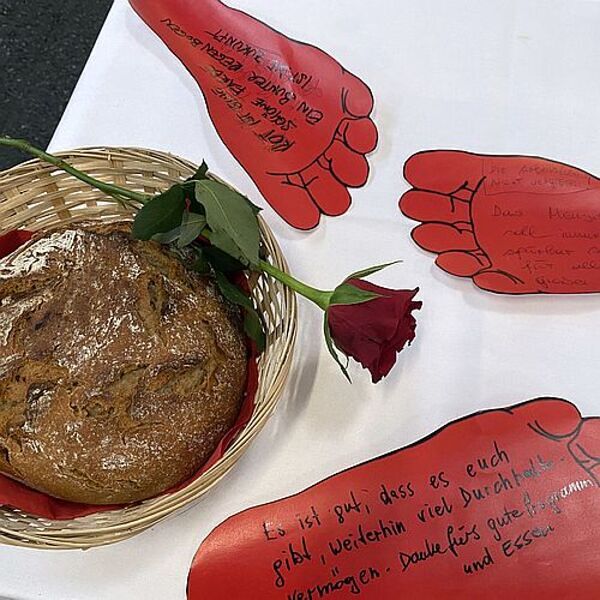 ROT IST EINE
SCHÖNE FARBE
EIN BUNTER REGENBOGEN
IST DIE ZUKUNFT
DIE
NICHT
Das
soll
spürbar
für alle
Es ist gut, dass es euch
gibt, weiterhin viel Durchhalte-
vermögen. Danke fürs gute Programm
und Essen